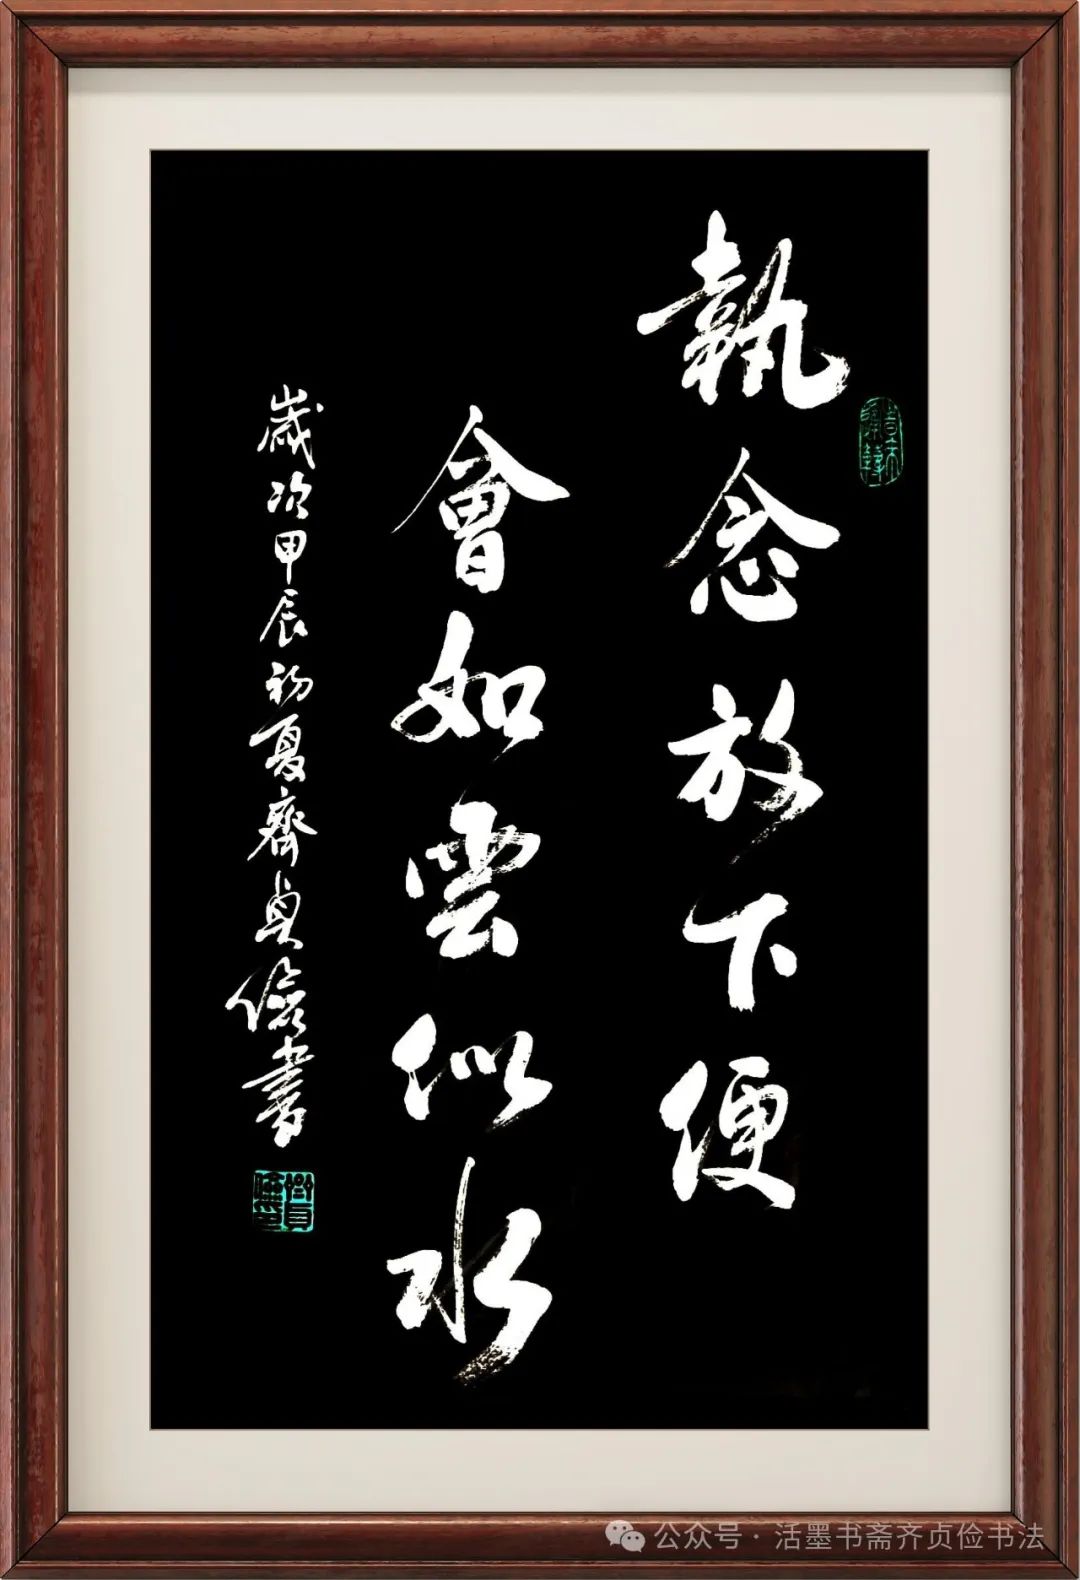 執念放下便
會如雲似水
歲次甲辰初夏齊貞儉書
公众号·活墨书斋齐贞俭书法